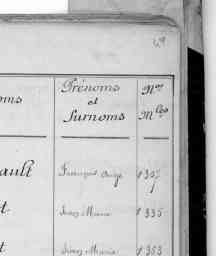 49
Prénoms Nos
oms et Mles
Surnoms
ault François 1307
t Jean Marie 1335
t Jean Marie 1353